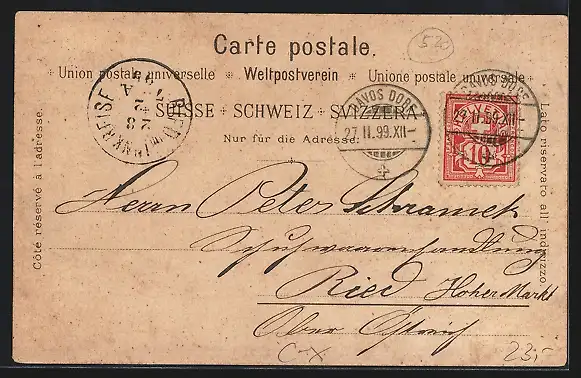 520
Carte postale.
Union postale universelle * Weltpostverein * Unione postale universale
SUISSE + SCHWEIZ + SVIZZERA
Nur für die Adresse:
Côte réservé à l'adresse.
Lato riservato all'indirizzo.
RIED im INNKREISE
28
2
DAVOS DORF
27.II.99.XII-
DAVOS DORF
27.II.99.XII-
10
Herrn Peter Schramek
Schuhwarenhandlung
Ried Hoher Markt
Ober Östreich
23,-